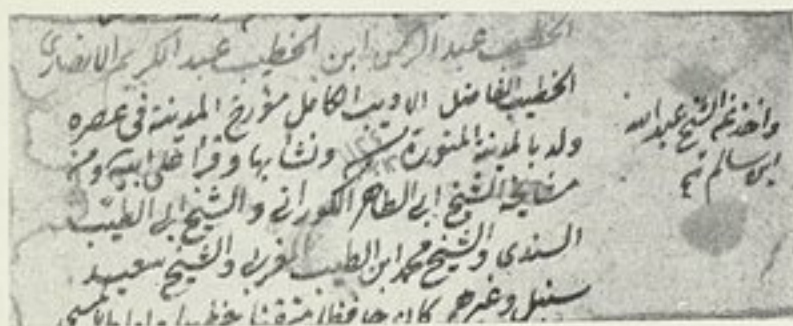 الخطيب عبد الرحمن ابن الخطيب عبد الكريم الانصاري
الخطيب الفاضل الاديب الكامل مؤرخ المدينة في عصره
ولد بالمدينة المنورة ونشا بها وقرا على ابيه ومن
مشايخه الشيخ ابي الطاهر الكوراني والشيخ ابي الطيب
السندي والشيخ محمد ابن الطيب المغربي والشيخ سعيد
سنبل وغيرهم كان حافظا متقنا خطيبا واماما بالمسجد
واخذ عن الشيخ عبد الله
ابن سالم